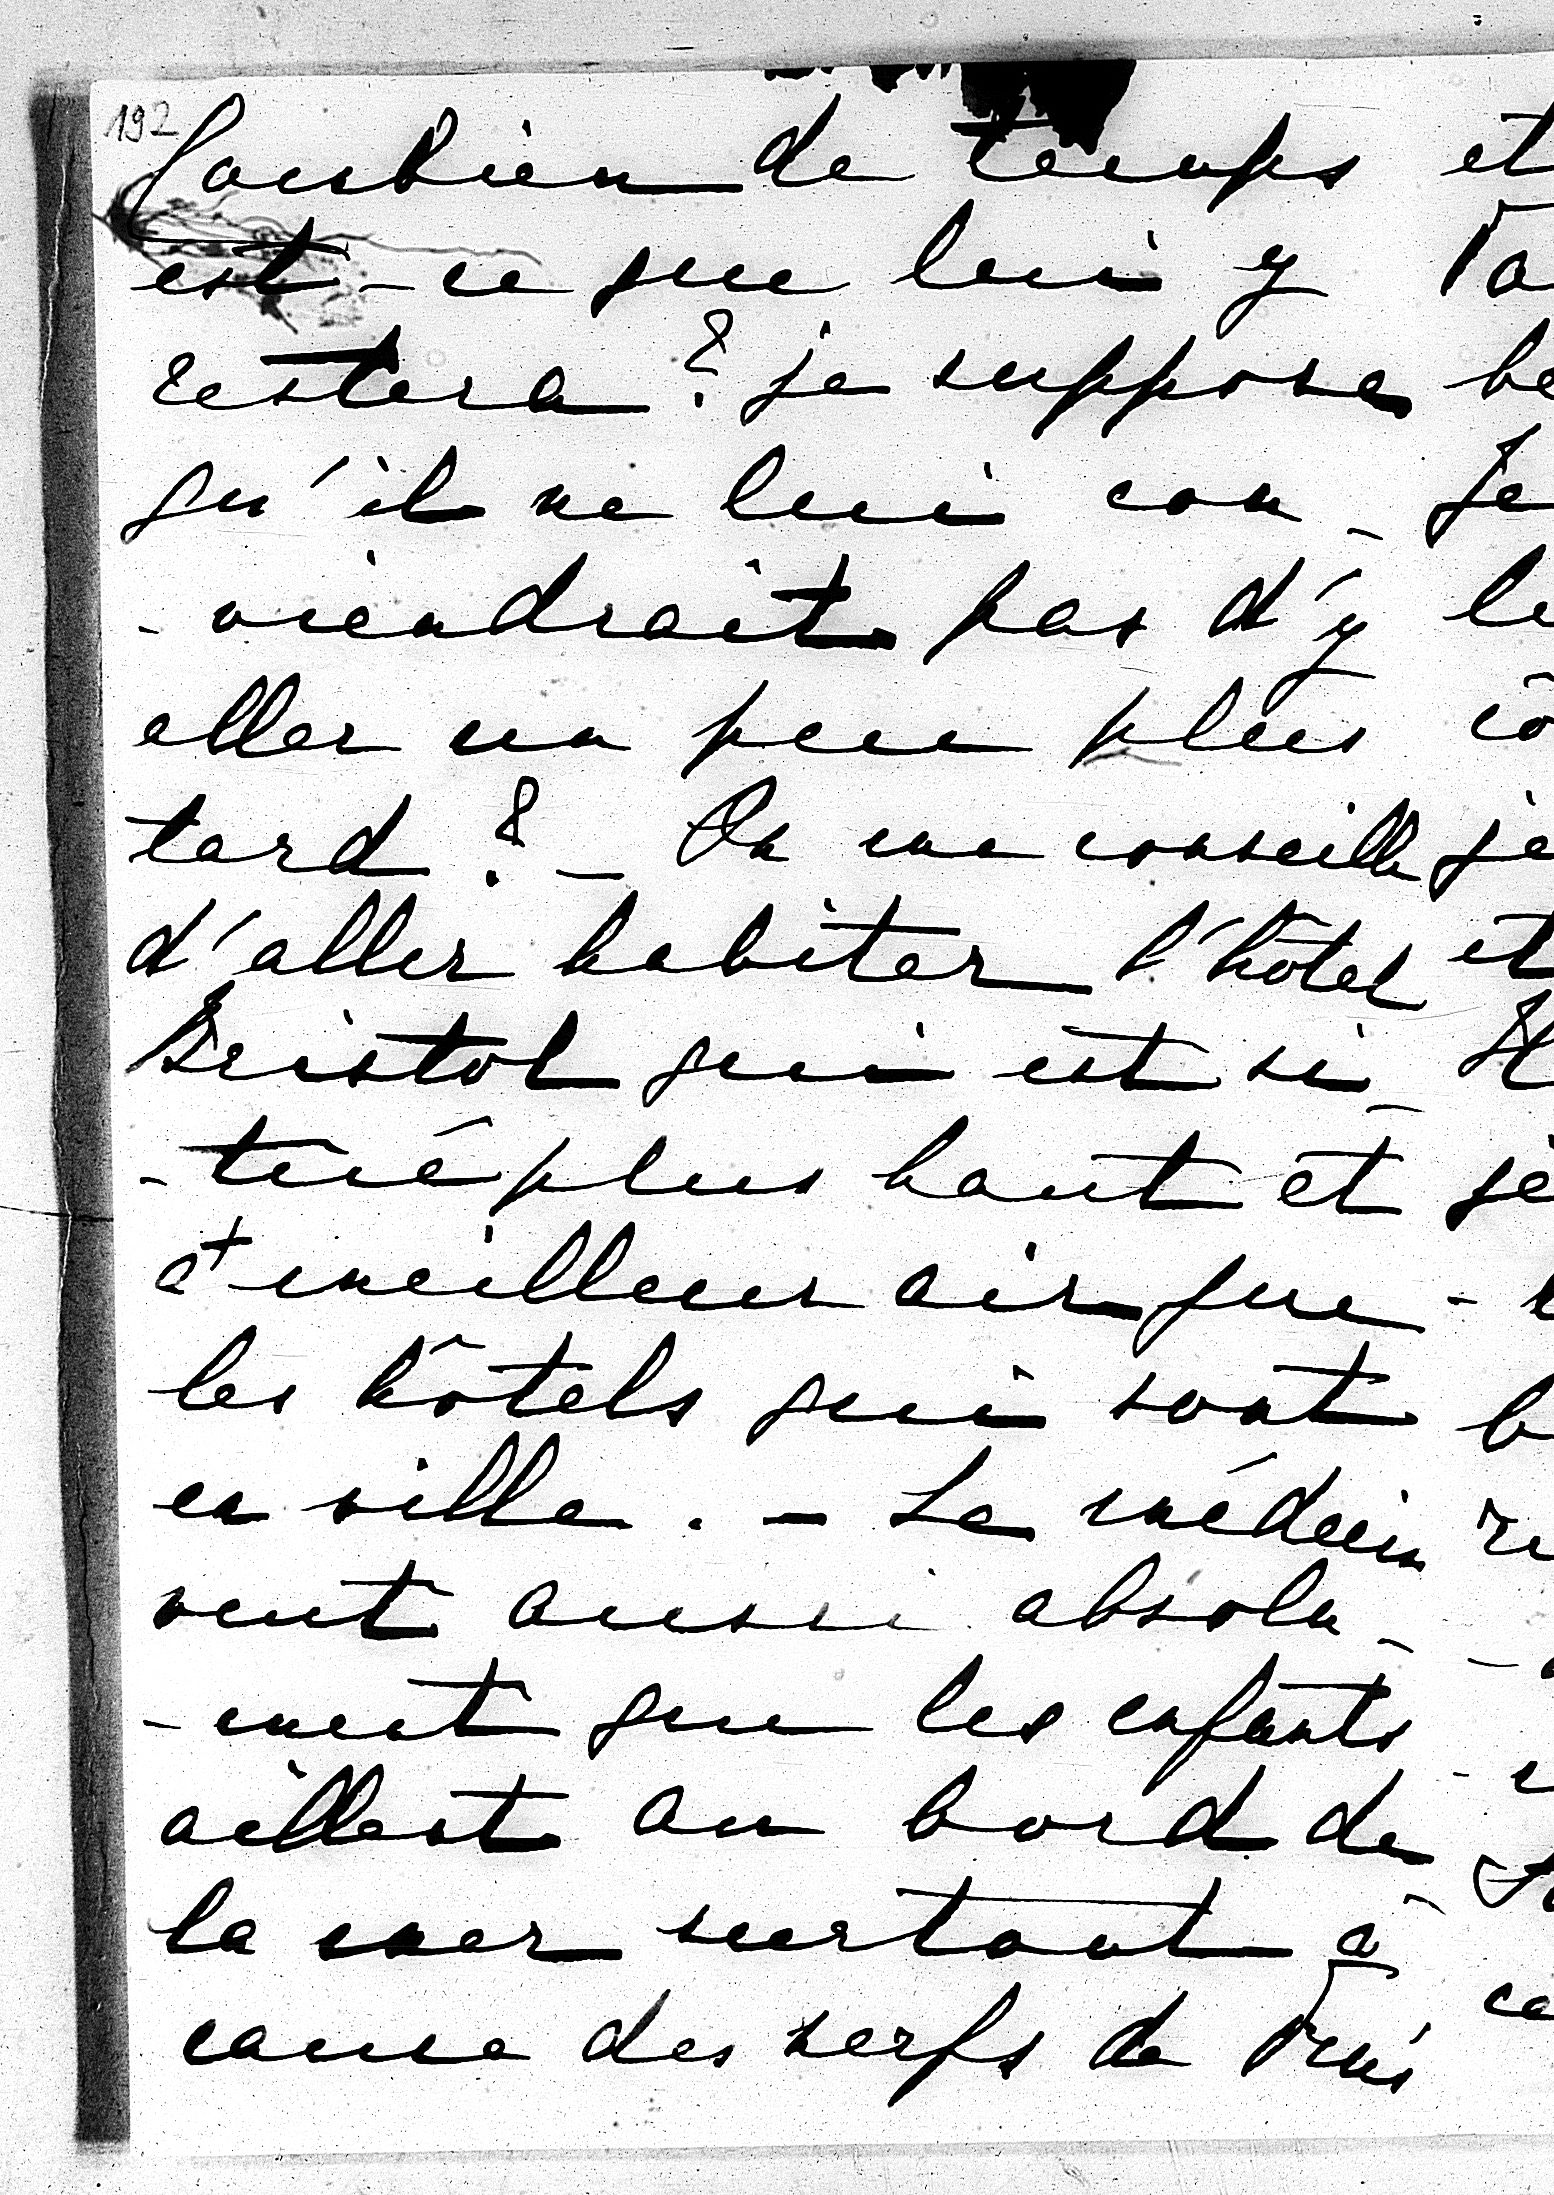 192
Combien de temps et
est-ce que lui y
restera? je suppose
qu'il ne lui con-
-viendrait pas d'y
aller un peu plus
tard? - On me conseille
d'aller habiter l'hôtel
Bristol qui est si-
-tué plus haut et
a meilleur air que
les hôtels qui sont
en ville. - Le médecin
veut aussi absolu-
-ment que les enfants
aillent au bord de
la mer surtout à
cause des nerfs de